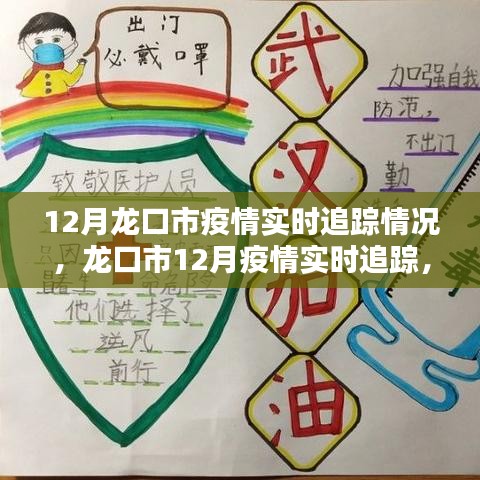 出门
必戴口罩
武
汉
加
油
加强自我
防范，
不出门
勤
致敬医护人员
12月龙口市疫情实时追踪情况
，龙口市12月疫情实时追踪，
他们选择了
逆风
前行